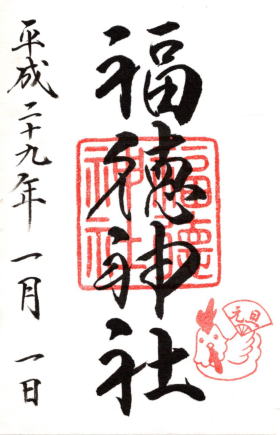 福徳神社
平成二十九年 一月 一日
福徳
神社
元旦